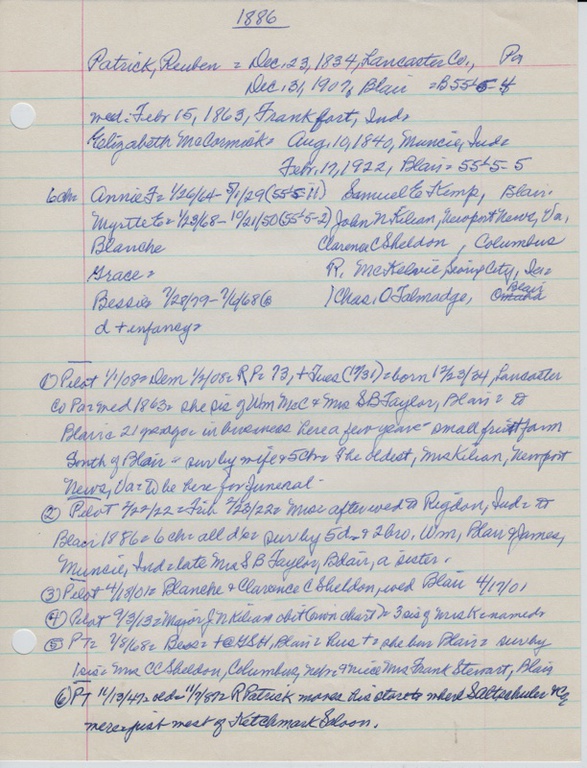 1886
Patrick, Reuben = Dec. 23, 1834, Lancaster Co., Pa
Dec. 31, 1907, Blair = B55-5-4
wed: Febr 15, 1863, Frankfort, Ind=
Elizabeth McCormick= Aug. 10, 1840, Muncie, Ind=
Febr. 17, 1922, Blair = 55-5-5
6 chn Annie F= 1/26/64- 5/1/29 (55-5-11) Samuel E Kemp, Blair=
Myrtle E= 1/23/68- 10/21/50 (55-5-2) John N Kilian, Newport News, Va,
Blanche Clarence C Sheldon, Columbus
Grace= R. McKelvie, City, Ia=
Bessie= 7/28/79- 7/6/68 ⑥ Chas. O Talmadge, Blair
d + infancy=
① Pilot 1/1/08= Dem 1/2/08= R P= 73, + Tues (12/31) = born 12/23/34, Lancaster
Co Pa= wed 1863= she sis of Wm McC & Mrs S B Taylor, Blair = to
Blair= 21 yrs ago = in business here a few years = small fruit farm
South of Blair = sur by wife & 5 ch= The oldest, Mrs Kilian, Newport
News, Va= to be here for funeral=
② Pilot 2/22/22= Trib 2/23/22= Mrs= after wed to Rigdon, Ind= to
Blair 1886= 6 ch= all das= sur by 5 da= & 2 bro, Wm, Blair & James,
Muncie, Ind= late Mrs S B Taylor, Blair, a sister.
③ Pilot 4/18/01= Blanche & Clarence C Sheldon, wed Blair 4/17/01
④ Pilot 9/3/13= Major J N Kilian obit (own chart) = 3 sis of Mrs K named=
⑤ PT= 7/8/68= Bess= + @ GSH, Blair= hus += she bur Blair= sur by
1 sis= Mrs C C Sheldon, Columbus, nebr= & niece Mrs Frank Stewart, Blair
⑥ PT 11/13/47= old= 11/7/87= R Patrick moves his store to where S Altschuler & Co
were= just west of Ketchmark Saloon.